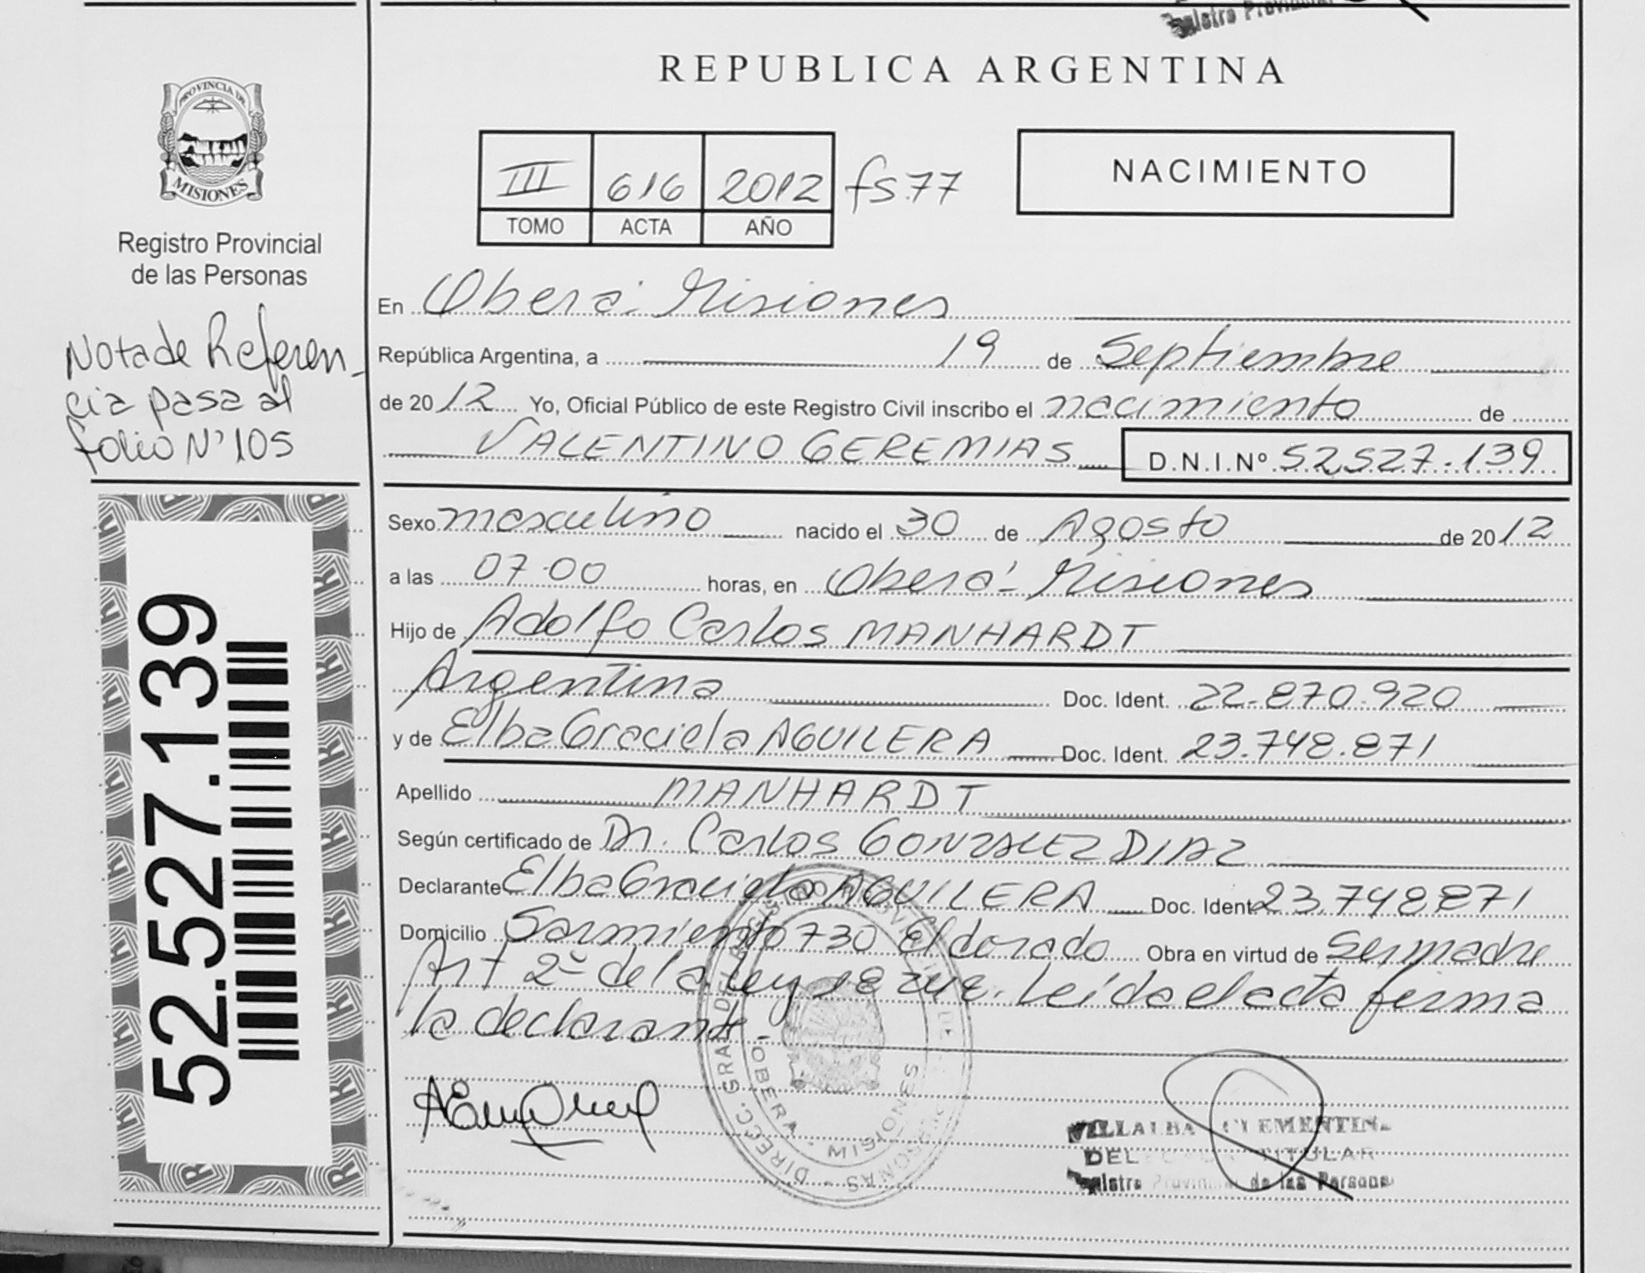 Registro Provincial
REPUBLICA ARGENTINA
PROVINCIA DE
MISIONES
Registro Provincial
de las Personas
III 616 2012 fs.77
TOMO ACTA AÑO
NACIMIENTO
Nota de Referen-
cia pasa al
folio Nº 105
52.527.139
En Oberá: Misiones
República Argentina, a 19 de Septiembre
de 2012 Yo, Oficial Público de este Registro Civil inscribo el nacimiento de
VALENTINO GEREMIAS D.N.I.Nº 52.527.139
Sexo masculino nacido el 30 de Agosto de 2012
a las 07.00 horas, en Oberá: Misiones
Hijo de Adolfo Carlos MANHARDT
Argentina Doc. Ident. 22.870.920
y de Elba Graciela AGUILERA Doc. Ident. 23.748.871
Apellido MANHARDT
Según certificado de Dr. Carlos GONZALEZ DIAZ
Declarante Elba Graciela AGUILERA Doc. Ident. 23.748.871
Domicilio Sarmiento 730 Eldorado Obra en virtud de Ser madre
Art 2º de la Ley 18248. Leída el acta firma
la declarante.
DIREC. GRAL. DEL REGISTRO PROVINCIAL DE LAS PERSONAS
OBERA - MISIONES
VILLALBA CLEMENTINA
TITULAR
Registro Provincial de las Personas